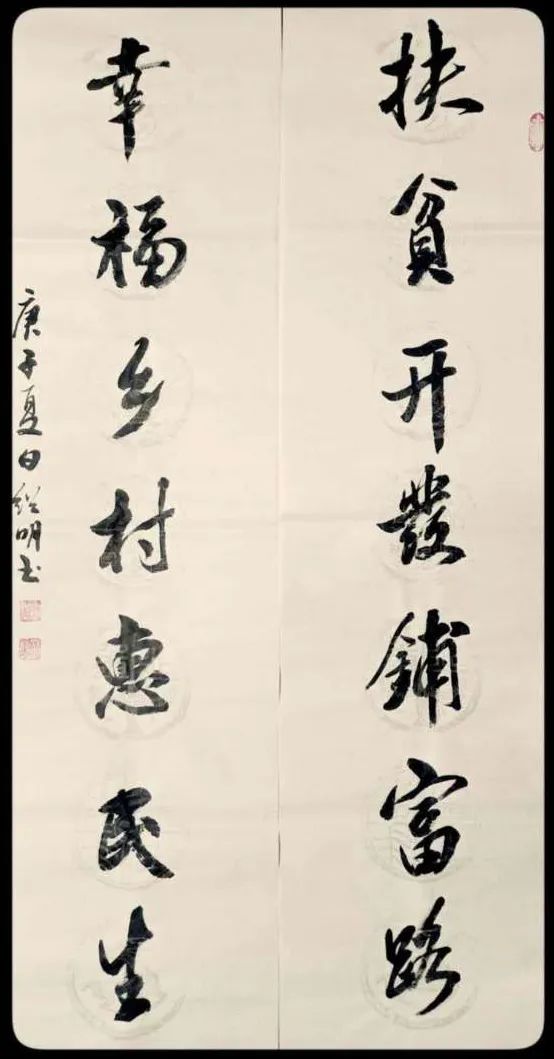 扶貧开發鋪富路
幸福乡村惠民生
庚子夏日绍明书